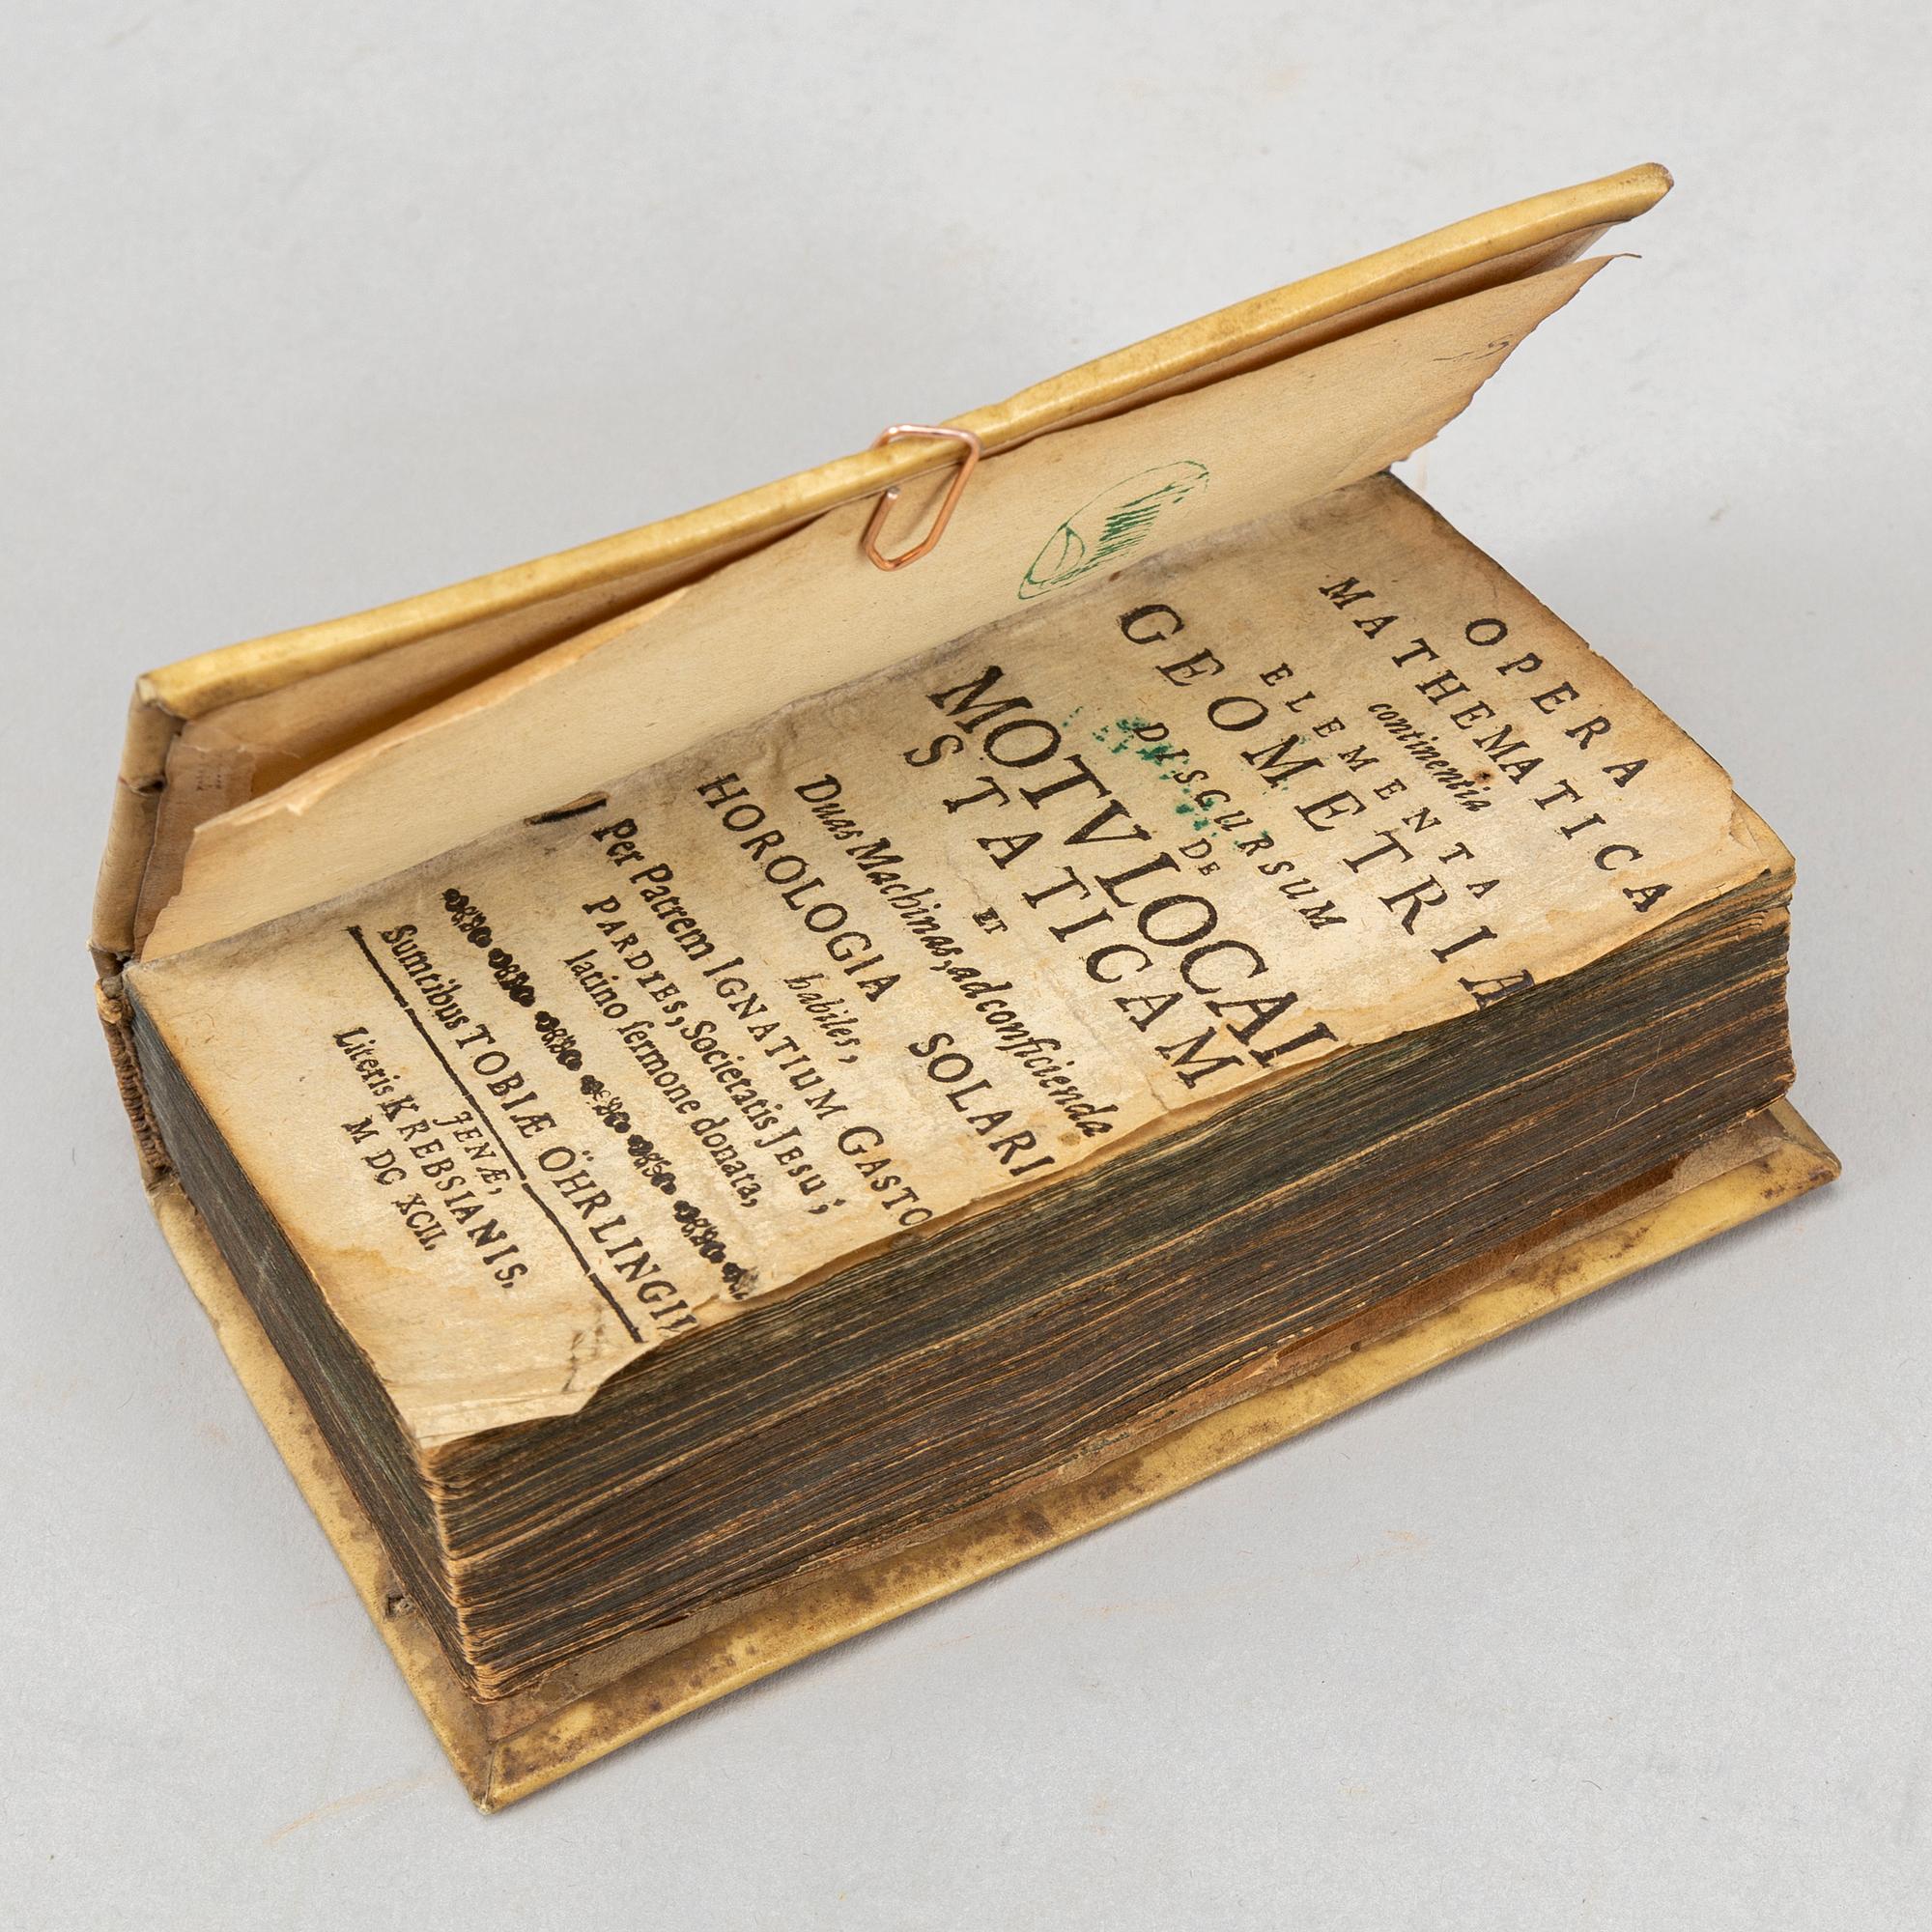 OPERA
MATHEMATICA
continentia
ELEMENTA
GEOMETRIÆ
DISCURSUM
DE
MOTV LOCAL
STATICAM
ET
Duas Machinas, ad conficienda
HOROLOGIA SOLARI
habiles,
Per Patrem IGNATIUM GASTO
PARDIES, Societatis JESU;
latino sermone donata,
Sumtibus TOBIÆ ÖHRLINGII
JENÆ,
Literis KREBSIANIS.
M DC XCII.